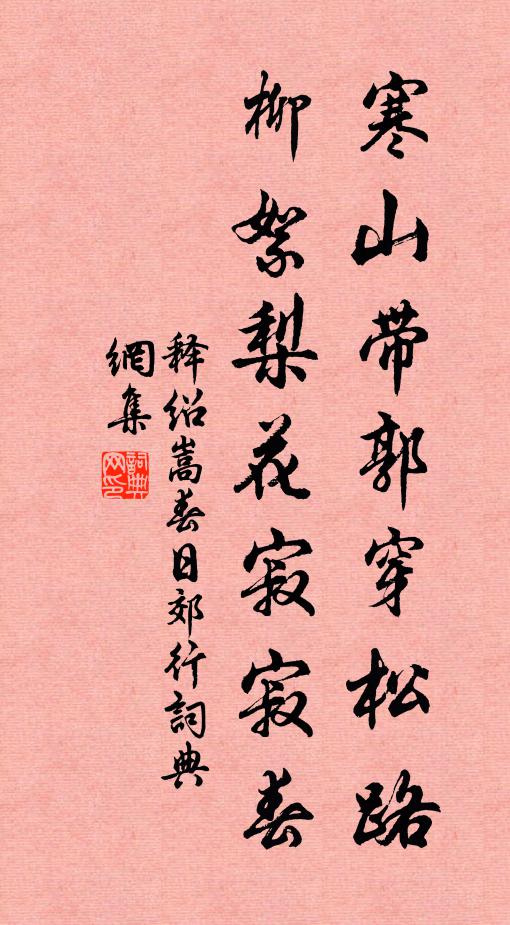 寒山带郭穿松路
柳絮梨花寂寂春
释绍嵩春日郊行詞典
網集
詞典
网印